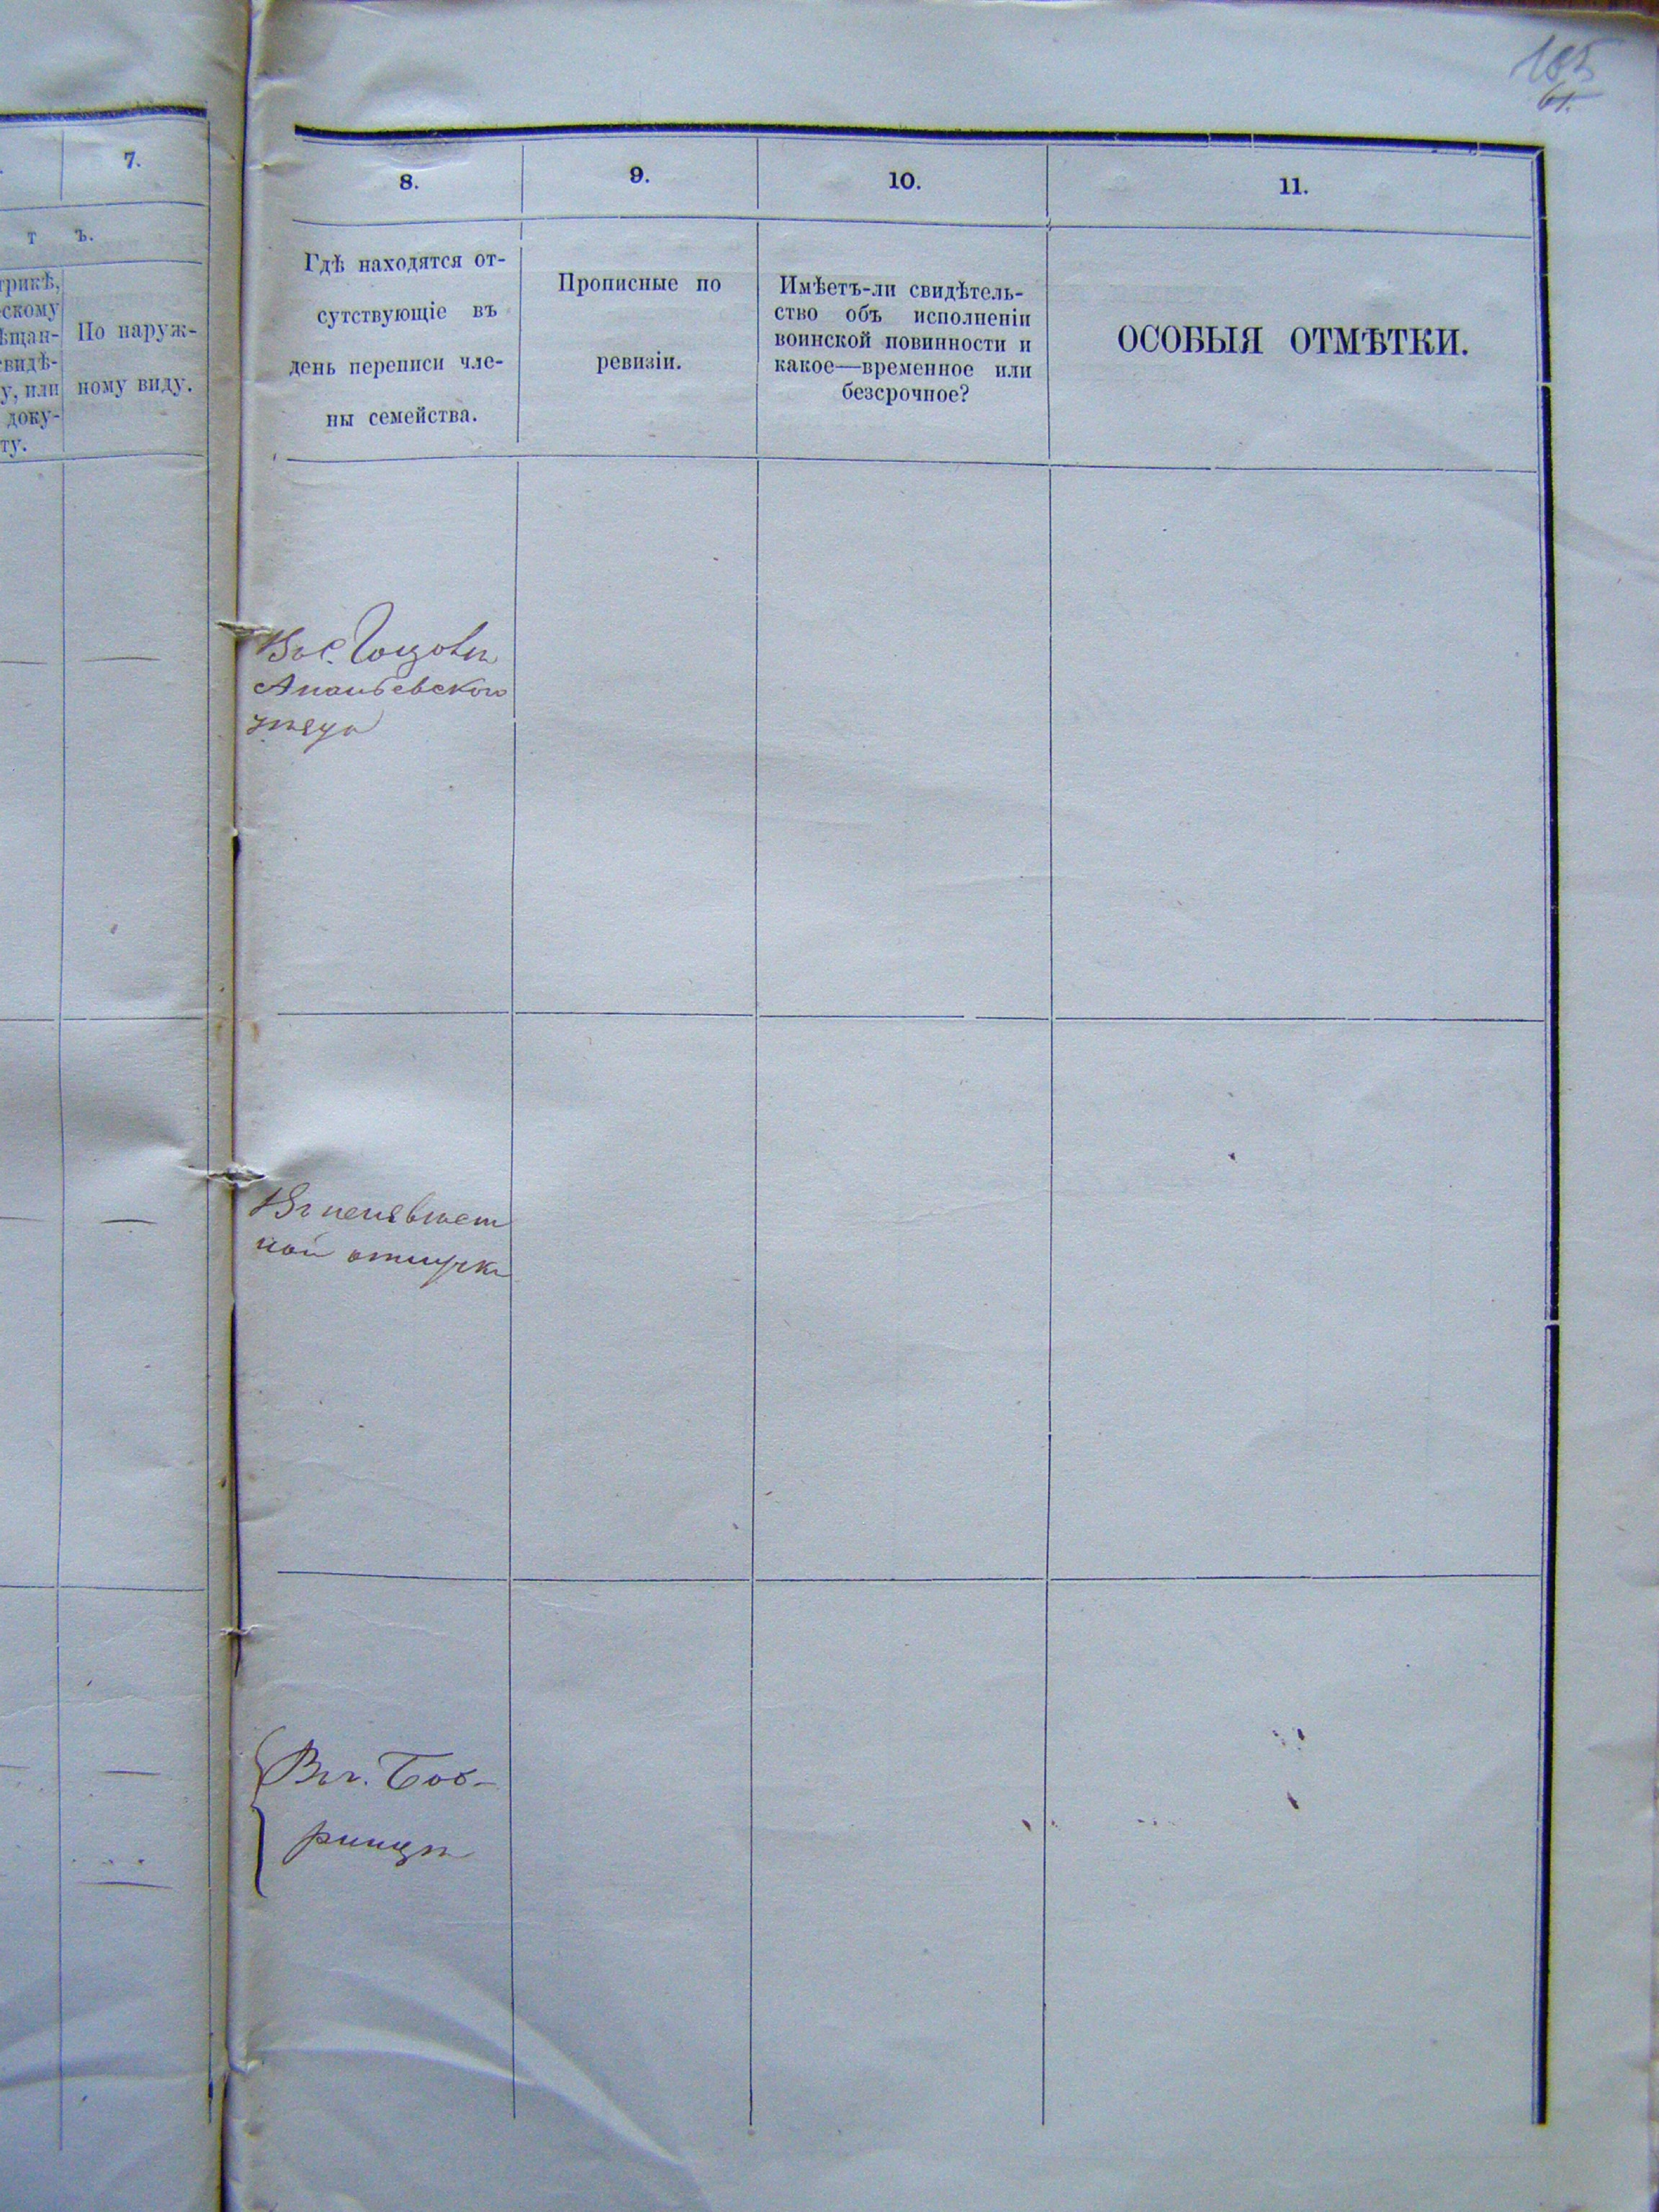 185
61.
7.
т ъ.
трикѣ,
скому
ѣщан-
свидѣ-
у, или
доку-
ту.
По наруж-
ному виду.
8.
9.
10.
11.
Гдѣ находятся от-
сутствующіе въ
день переписи чле-
ны семейства.
Прописные по
ревизіи.
Имѣетъ-ли свидѣтель-
ство объ исполненіи
воинской повинности и
какое—временное или
безсрочное?
ОСОБЫЯ ОТМѢТКИ.
Въ с.
Ананьевского
уѣзда
Въ неизвѣст
ной отлучкѣ
Въ г. Боб-
ринцѣ